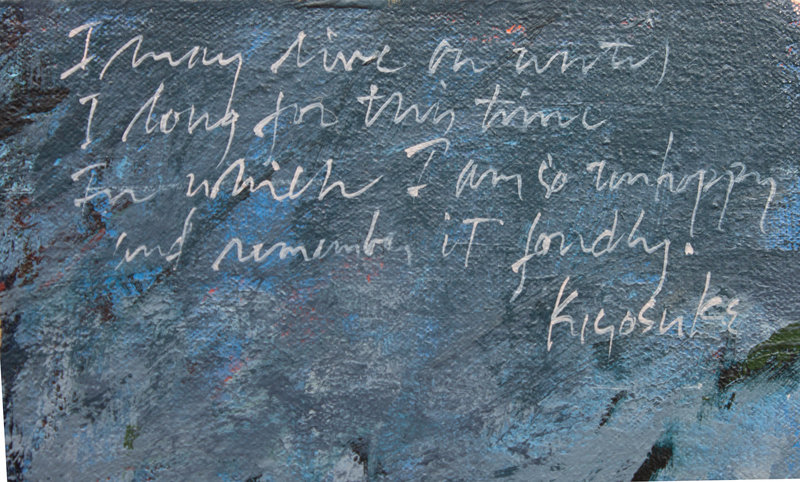 I may live on until
I long for this time
In which I am so unhappy
and remember it fondly.
Kiyosuke